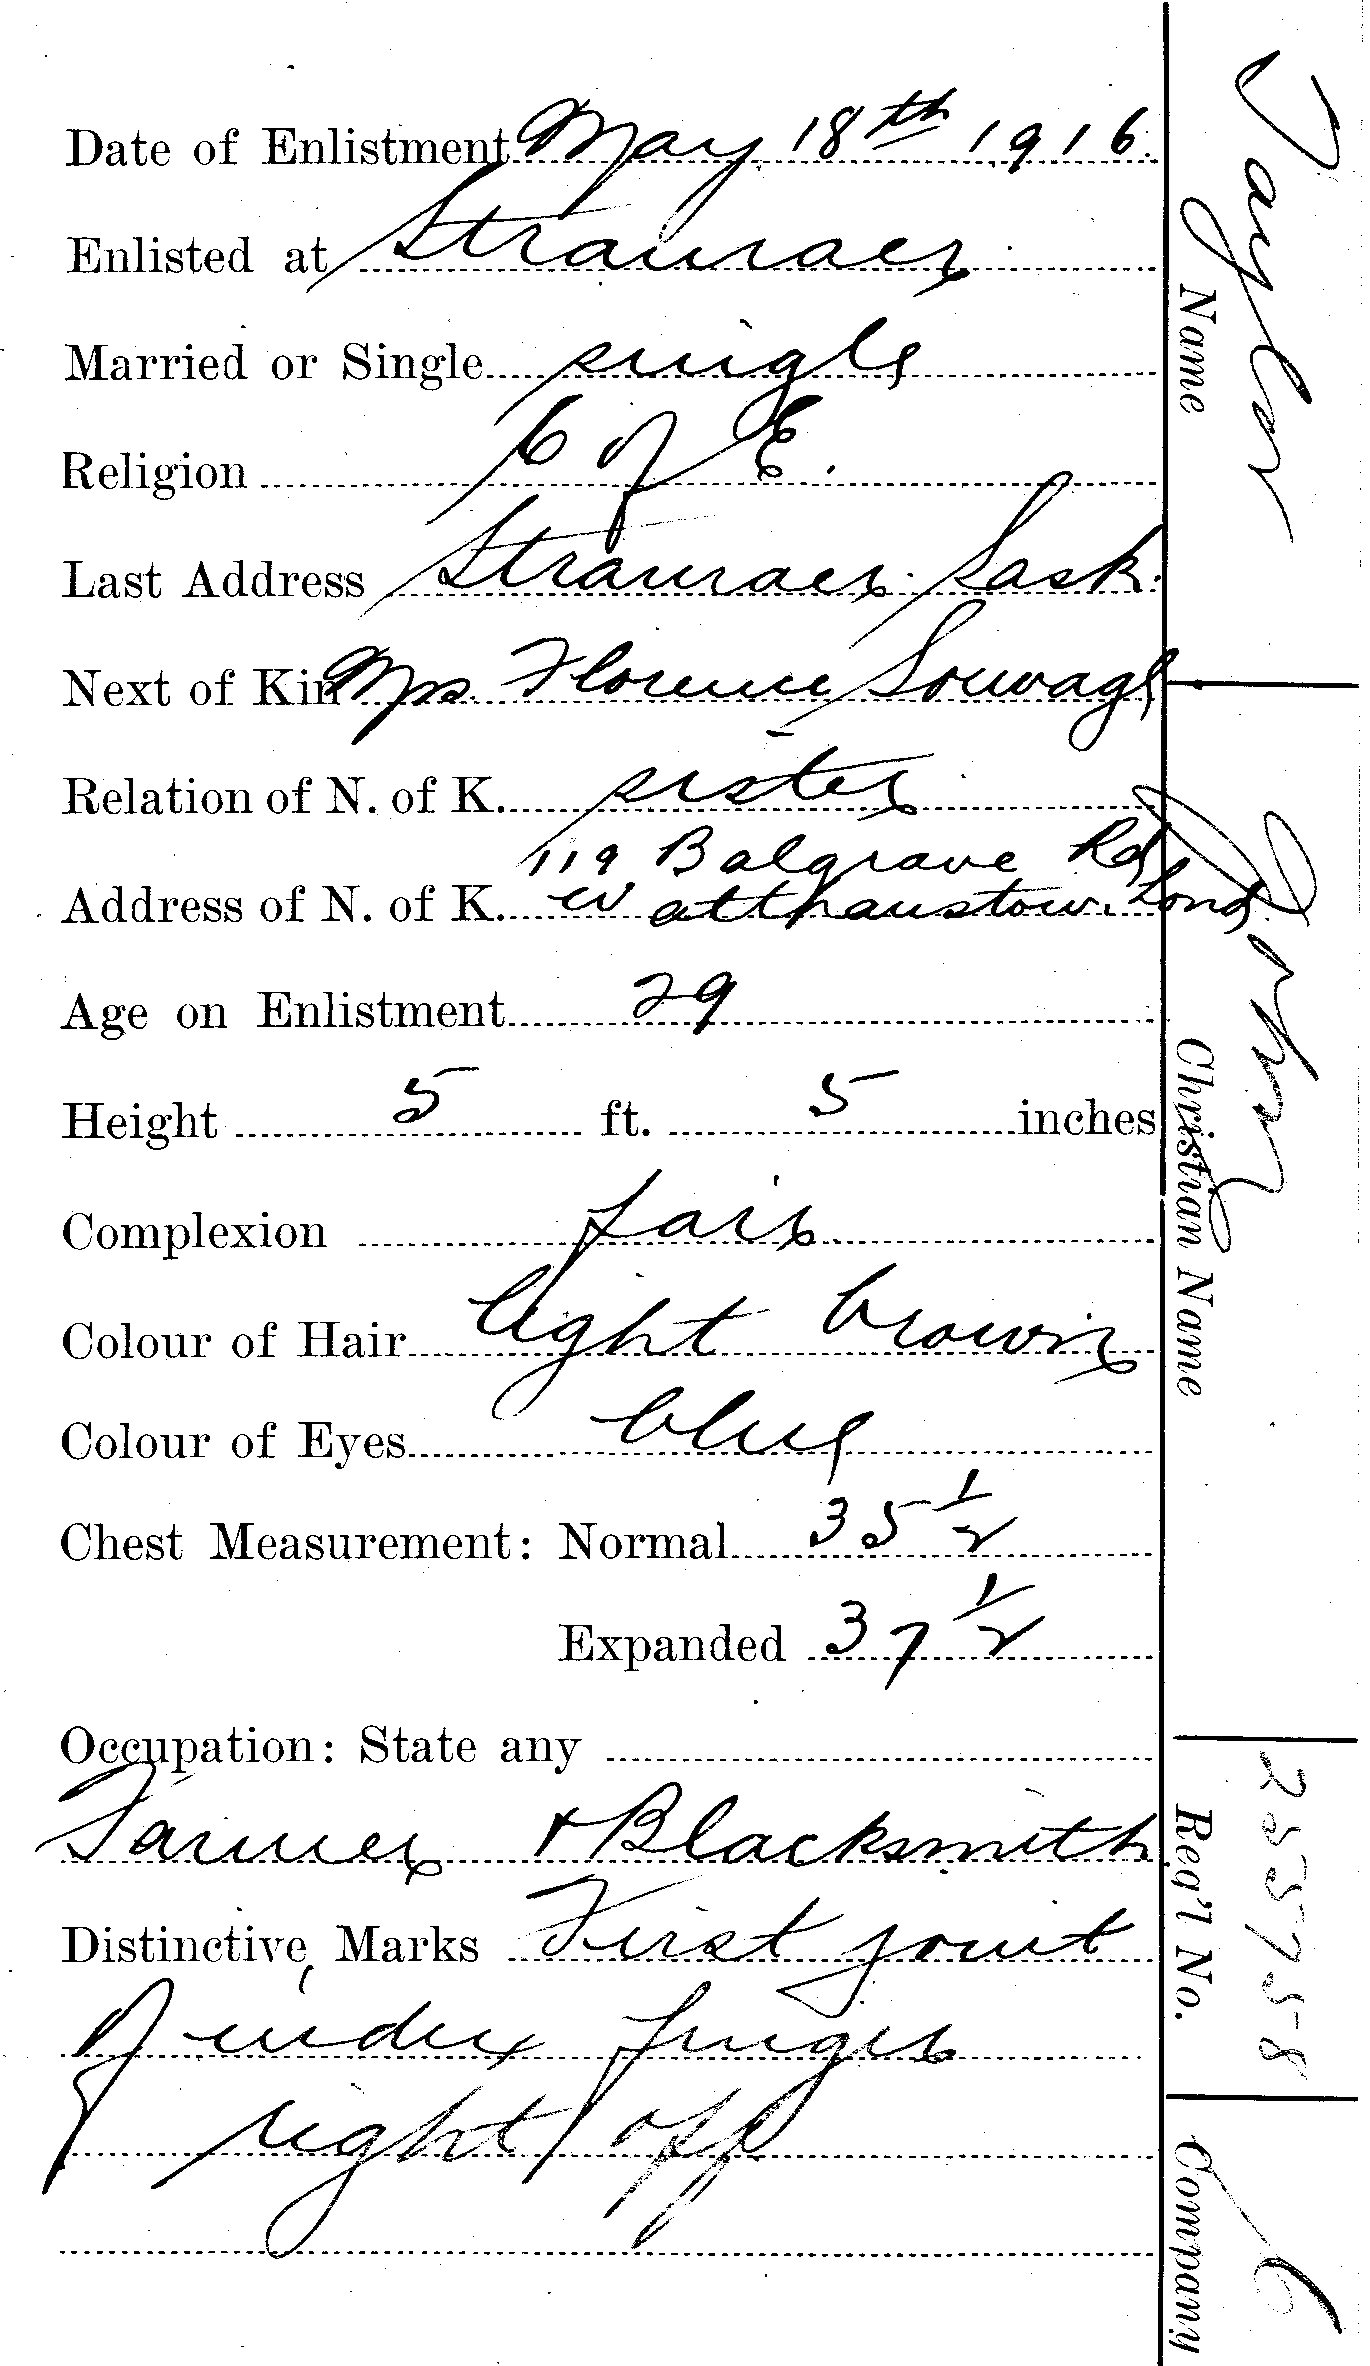 Date of Enlistment May 18th 1916
Enlisted at Stranraer
Married or Single single
Religion C of E.
Last Address Stranraer Sask.
Next of Kin Mrs. Florence Souvage
Relation of N. of K. sister
119 Balgrave Rd
Address of N. of K. W atthaustow. Lond
Age on Enlistment 29
Height 5 ft. 5 inches
Complexion fair
Colour of Hair light brown
Colour of Eyes blue
Chest Measurement: Normal 35 1/2
Expanded 37 1/2
Occupation: State any
Farmer & Blacksmith
Distinctive Marks First joint
of index finger
right off
Taylor
Name
John
Christian Name
255758
Reg'l No.
C
Company